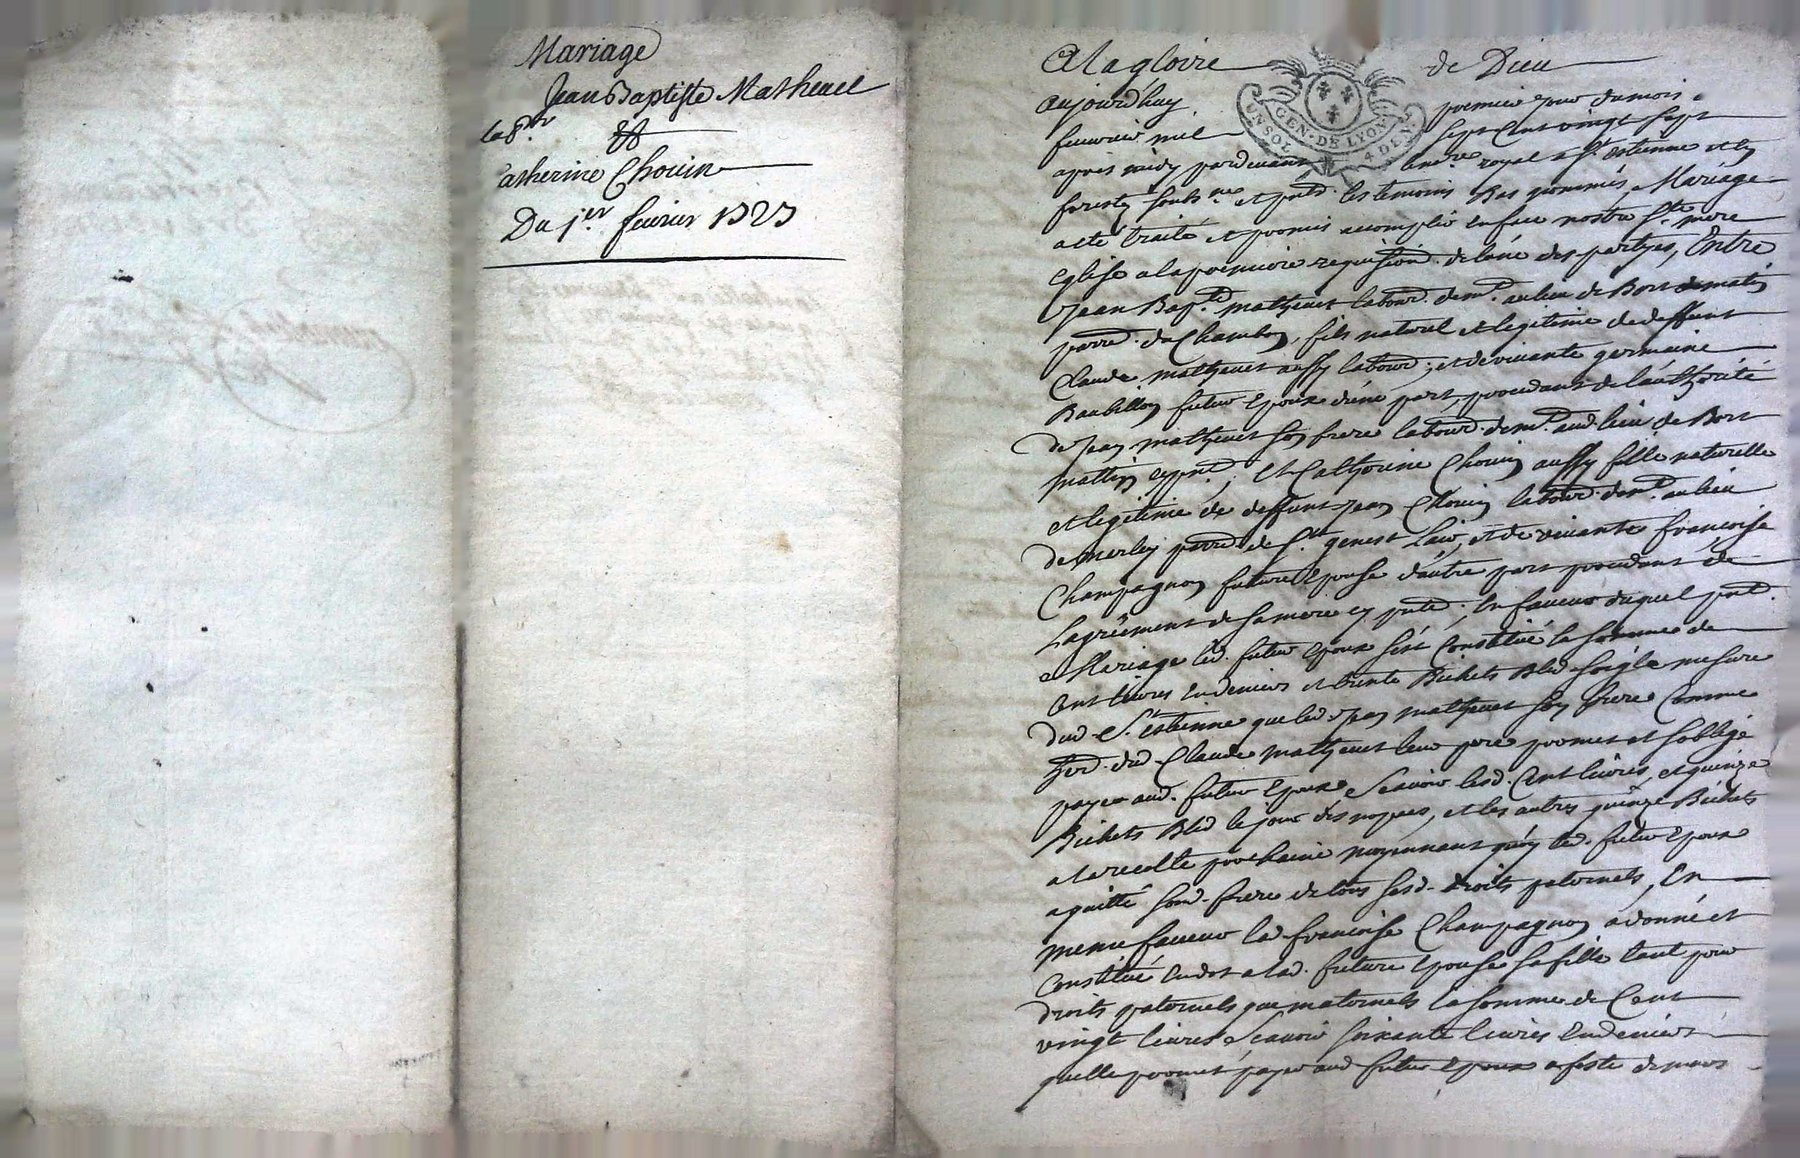 Mariage
Jean Baptiste Mathevet
lab.r
&
Catherine Chovin
Du 1.er fevrier 1727
A la gloire de Dieu
UN SOL GEN. DE LYON 4 DEN.
Aujourdhuy premier jour du mois
feuvrier mil sept Cent vingt sept
apres midy pardevant no.re royal a S.t Estienne en
forestz soubs.ne et pnts. les temoins Bas nommés, Mariage
a eté traité et promis accomplir en face nostre S.te mere
Eglise a la premiere requisition de l'une des partyes, Entre
Jean Bap.te mathevet labour. dem.t au lieu de Bort
parr.e du Chambon, fils naturel et legitime de deffunt
Claude mathevet aussy labour.; et de vivante germaine
Baubillon futur Epoux d'une part, procedant de l'authorité
de Jean mathevet son frere labour. dem.t aud. lieu de Bort
; Et Catherine Chovin aussy fille naturelle
et legitime de deffunt Jean Chovin labour. dem.t au lieu
de merley parr.e de S.t genest Lair, et de vivante francoise
Champagnon future Epouse d'autre part procedant de
L'agréement de sa mere cy pnte.; En faveur duquel pnt.
Mariage led. futur Epoux s'est Constitué la somme de
Cent livres en deniers et trente Bichets Bled soigle mesure
dud. S.t Estienne que led. Jean mathevet son frere Comme
her. dud. Claude mathevet leur pere promet et s'oblige
payer aud. futur Epoux Scavoir lesd. Cent livres, et quinze
Bichets Bled le jour des nopces, et les autres quinze Bichets
a la recolte prochaine moyennant quoy led. futur Epoux
a quitté sond. frere de tous sesd. droits paternels, En
meme faveur lad. francoise Champagnon a donné et
Constitué en dot a lad. future Epouse sa fille tant pour
droits paternels que maternels la somme de Cent
vingt livres Scavoir soixante livres en deniers
quelle promet payer aud. futur Epoux a feste de